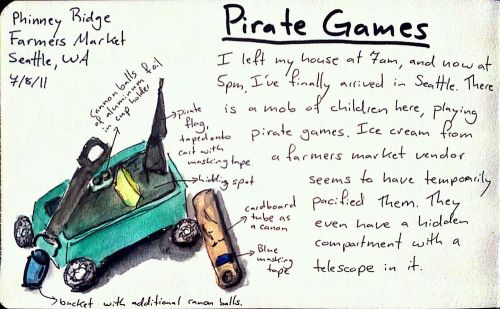 Phinney Ridge
Farmers Market
Seattle, WA
7/8/11
Pirate Games
I left my house at 7am, and now at
5pm, I've finally arrived in Seattle. There
is a mob of children here, playing
pirate games. Ice cream from
a farmers market vendor
seems to have temporarily
pacified them. They
even have a hidden
compartment with a
telescope in it.
cannon balls
of aluminum foil
in cup holder
pirate
flag,
taped onto
cart with
masking tape
hiding spot
cardboard
tube as
a canon
Blue
masking
tape
bucket with additional canon balls.